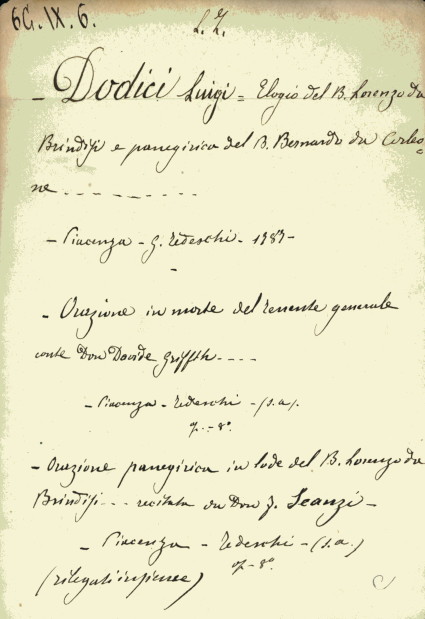 6G.IX.6.
L. Z.
- Dodici Luigi = Elogio del B. Lorenzo da
Brindisi e panegirico del B. Bernardo da Corleo=
ne ..........
- Piacenza - G. Tedeschi - 1783 -
-
- Orazione in morte del tenente generale
conte Don Davide Griffth ....
- Piacenza - Tedeschi - (s.a).
-8°.
- Orazione panegirica in lode del B. Lorenzo da
Brindisi ... recitata da Don J. Scanzi -
- Piacenza - Tedeschi - (s.a.)
-8°
(rilegati insieme)